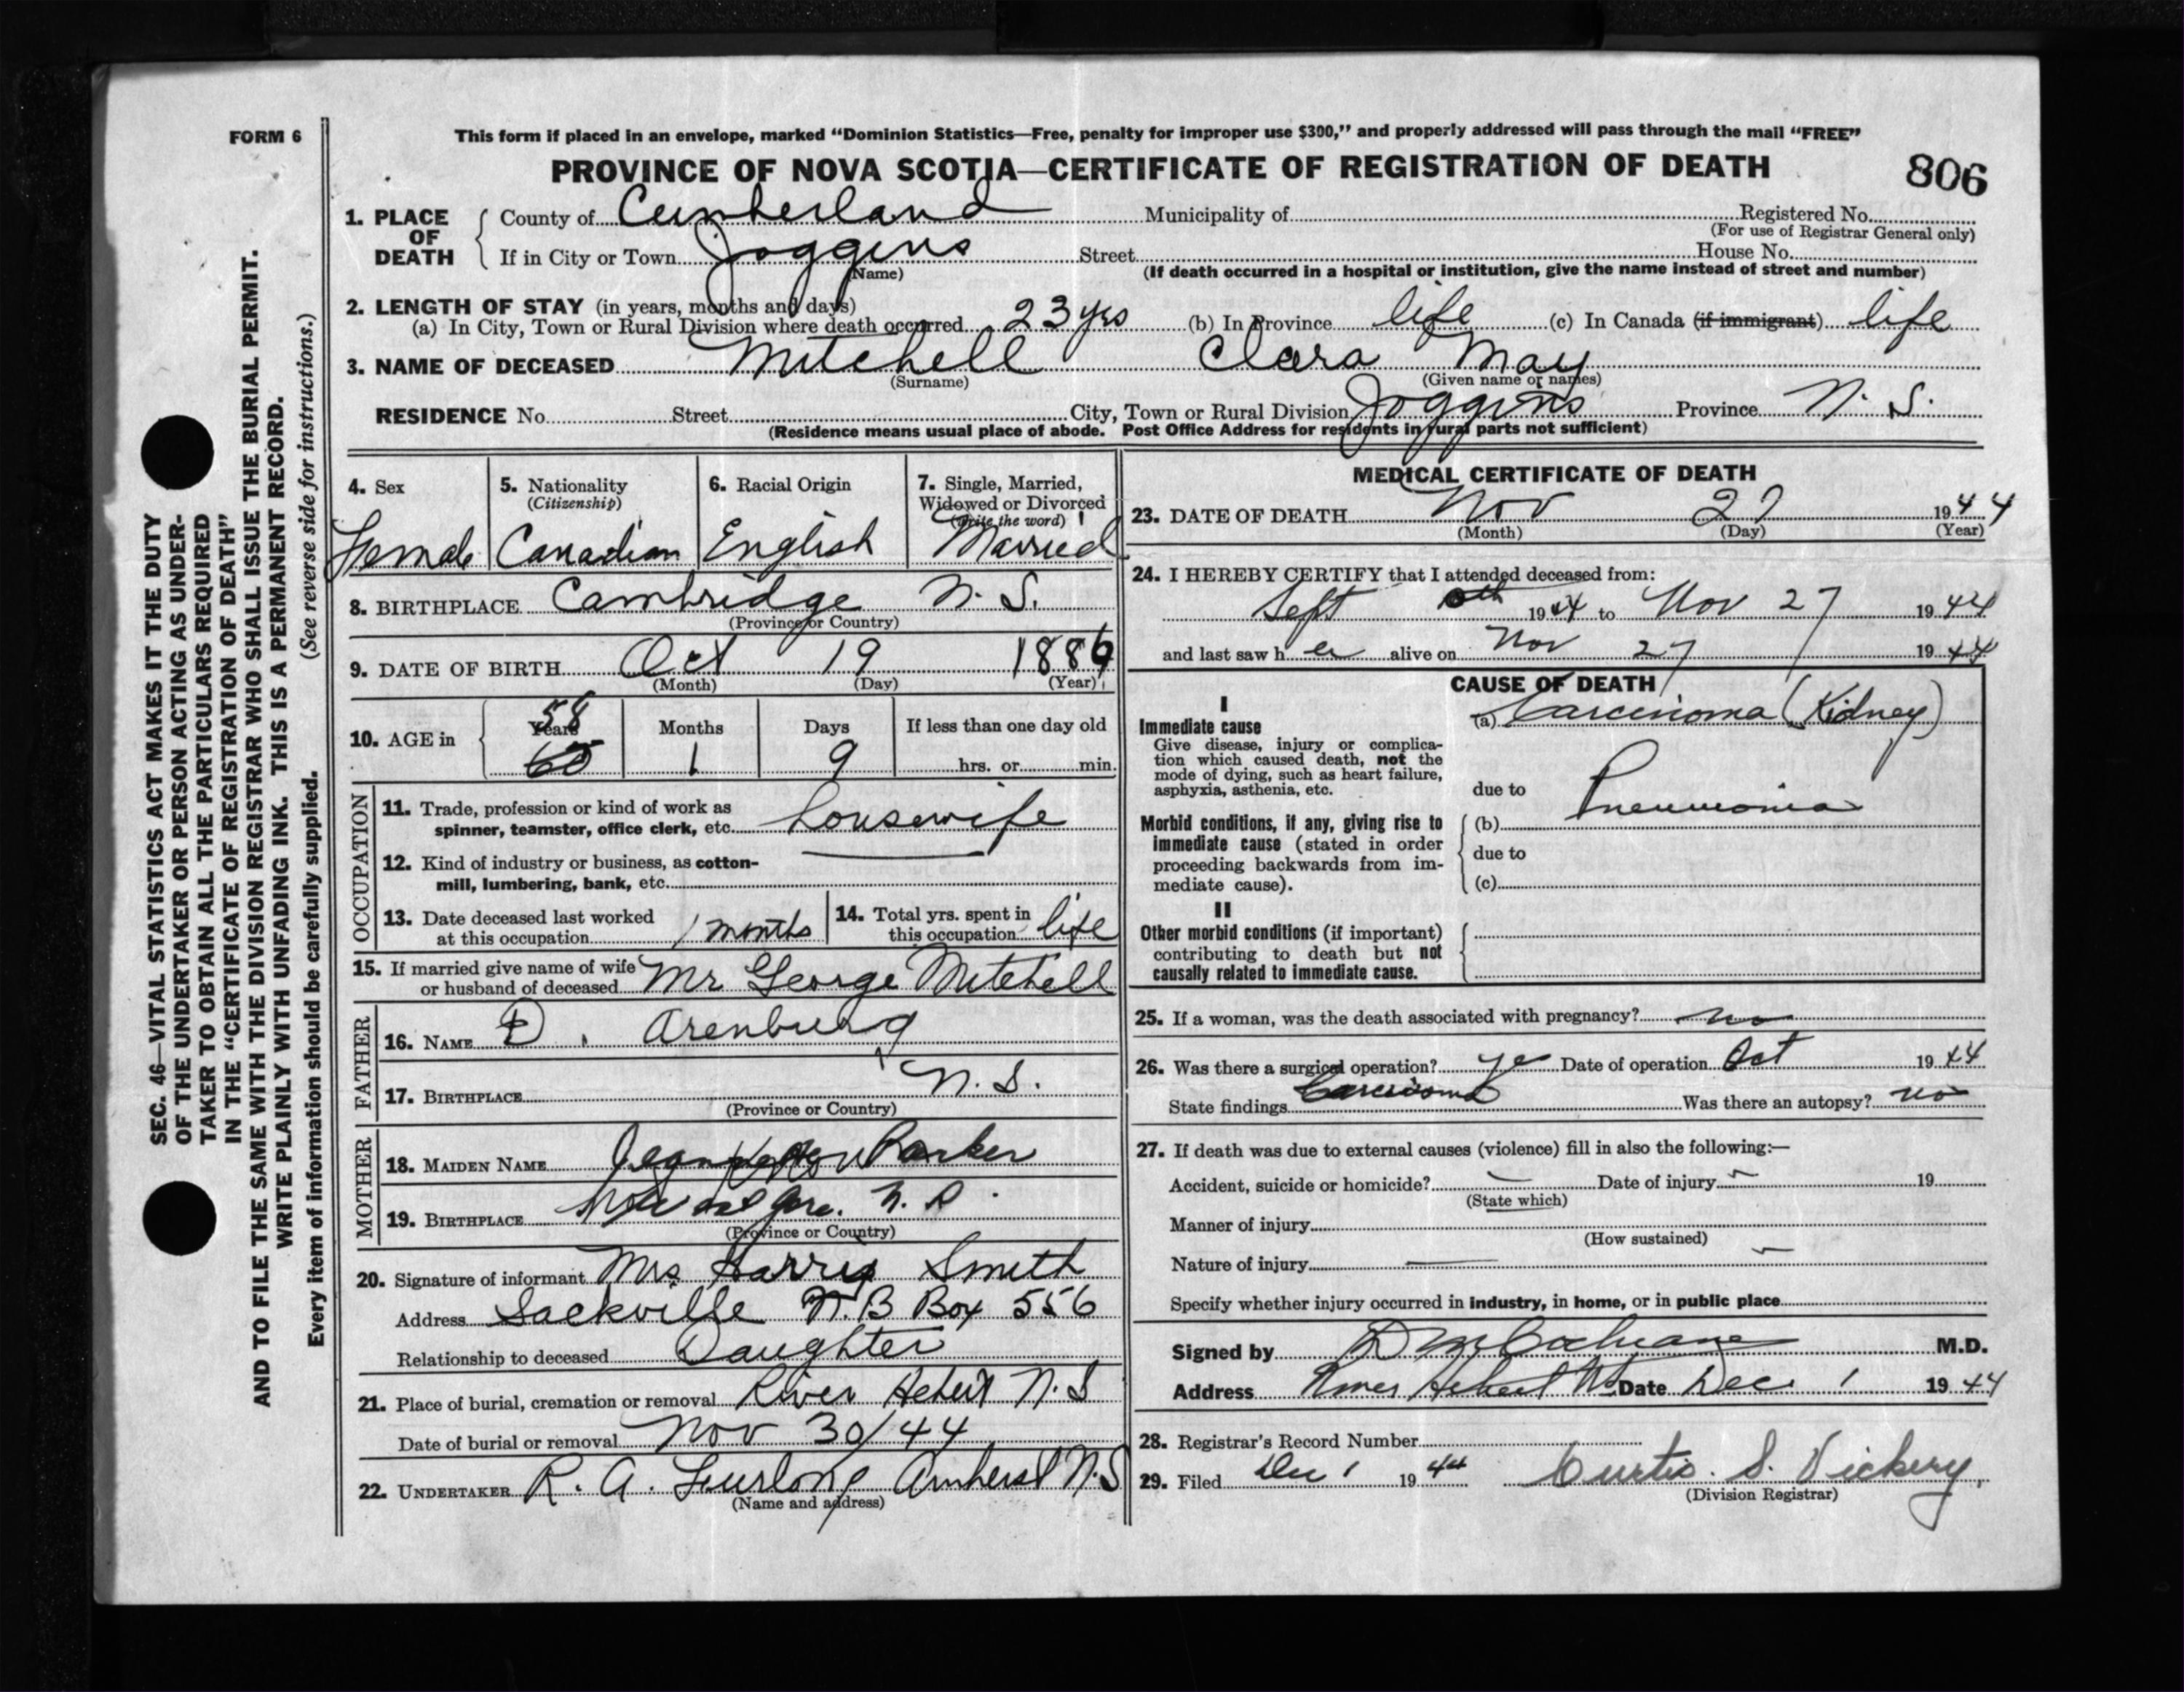 FORM 6
This form if placed in an envelope, marked “Dominion Statistics—Free, penalty for improper use $300,” and properly addressed will pass through the mail “FREE”
PROVINCE OF NOVA SCOTIA—CERTIFICATE OF REGISTRATION OF DEATH
806
1. PLACE OF DEATH County of Cumberland Municipality of Registered No.
(For use of Registrar General only)
If in City or Town Joggins Street House No.
(Name) (If death occurred in a hospital or institution, give the name instead of street and number)
2. LENGTH OF STAY (in years, months and days)
(a) In City, Town or Rural Division where death occurred 23 yrs (b) In Province life (c) In Canada (if immigrant) life
3. NAME OF DECEASED Mitchell Clara May
(Surname) (Given name or names)
RESIDENCE No. Street City, Town or Rural Division Joggins Province N. S.
(Residence means usual place of abode. Post Office Address for residents in rural parts not sufficient)
4. Sex Female
5. Nationality (Citizenship) Canadian
6. Racial Origin English
7. Single, Married, Widowed or Divorced (Write the word) Married
8. BIRTHPLACE Cambridge N. S.
(Province or Country)
9. DATE OF BIRTH Oct 19 1886
(Month) (Day) (Year)
10. AGE in Years Months Days If less than one day old
58
60 1 9 hrs. or min.
OCCUPATION
11. Trade, profession or kind of work as
spinner, teamster, office clerk, etc. housewife
12. Kind of industry or business, as cotton-
mill, lumbering, bank, etc.
13. Date deceased last worked
at this occupation 1 months
14. Total yrs. spent in
this occupation life
15. If married give name of wife
or husband of deceased Mr George Mitchell
FATHER
16. NAME D. Arenburg
17. BIRTHPLACE N. S.
(Province or Country)
MOTHER
18. MAIDEN NAME Parker
19. BIRTHPLACE N. S.
(Province or Country)
20. Signature of informant Mrs Harris Smith
Address Sackville N.B Box 556
Relationship to deceased Daughter
21. Place of burial, cremation or removal River Hebert N. S
Date of burial or removal Nov 30/44
22. UNDERTAKER R. A. Furlong Amherst N.S
(Name and address)
MEDICAL CERTIFICATE OF DEATH
23. DATE OF DEATH Nov 27 1944
(Month) (Day) (Year)
24. I HEREBY CERTIFY that I attended deceased from:
Sept 1944 to Nov 27 1944
and last saw her alive on Nov 27 1944
CAUSE OF DEATH
I
Immediate cause
Give disease, injury or complica-
tion which caused death, not the
mode of dying, such as heart failure,
asphyxia, asthenia, etc.
(a) Carcinoma (Kidney)
due to
Morbid conditions, if any, giving rise to
immediate cause (stated in order
proceeding backwards from im-
mediate cause).
(b) Pneumonia
due to
(c)
II
Other morbid conditions (if important)
contributing to death but not
causally related to immediate cause.
25. If a woman, was the death associated with pregnancy? no
26. Was there a surgical operation? yes Date of operation Oct 1944
State findings Carcinoma Was there an autopsy? no
27. If death was due to external causes (violence) fill in also the following:—
Accident, suicide or homicide? Date of injury 19
(State which)
Manner of injury
(How sustained)
Nature of injury
Specify whether injury occurred in industry, in home, or in public place
Signed by D M Cochrane M.D.
Address River Hebert NS Date Dec 1 1944
28. Registrar's Record Number
29. Filed Dec 1 1944 Curtis. S. Vickery.
(Division Registrar)
SEC. 46—VITAL STATISTICS ACT MAKES IT THE DUTY
OF THE UNDERTAKER OR PERSON ACTING AS UNDER-
TAKER TO OBTAIN ALL THE PARTICULARS REQUIRED
IN THE “CERTIFICATE OF REGISTRATION OF DEATH”
AND TO FILE THE SAME WITH THE DIVISION REGISTRAR WHO SHALL ISSUE THE BURIAL PERMIT.
WRITE PLAINLY WITH UNFADING INK. THIS IS A PERMANENT RECORD.
Every item of information should be carefully supplied. (See reverse side for instructions.)